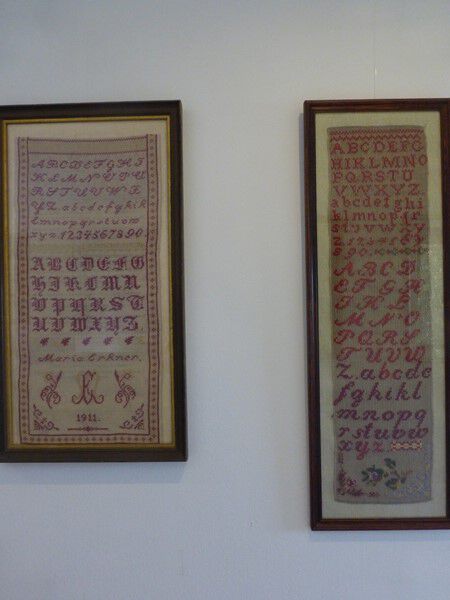 ABCDEFGHI
KLMNOPQ
RSTUVWX
YZ.abcdefghikl
lmnopqrstuvw
xyz.1234567890.
ABCDEFG
HIKLMN
OPQRST
UVWXYZ.
Maria Erkner.
1911.
ABCDEFG
HIKLMNO
PQRSTU
VWXYZ
abcdefghi
klmnopqr
stuvwxy
z.
ABCD
EFG
IHK
MNO
PQRS
TUVW
Z.abcde
fghikl
mnopq
rstuvw
xyz